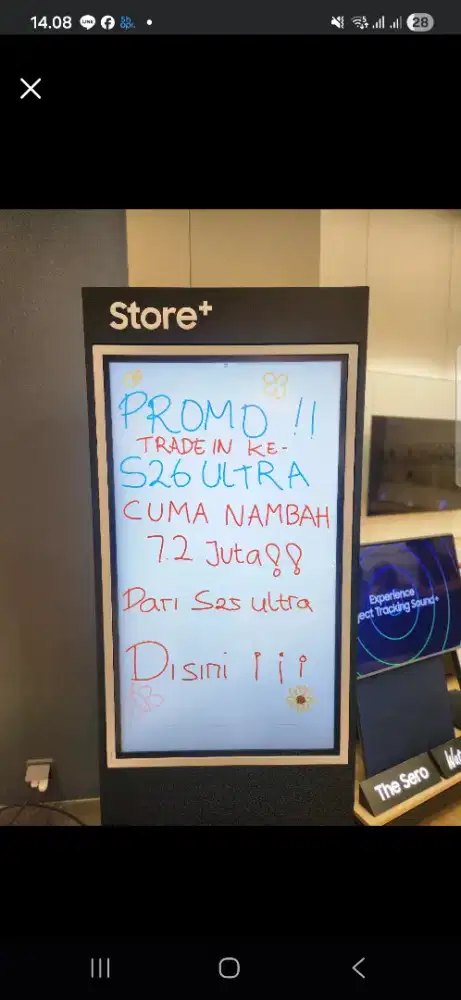 14.08
28
Store+
PROMO !!
TRADE IN KE-
S26 ULTRA
CUMA NAMBAH
7.2 Juta!!
Dari S25 Ultra
Disini !!!
Experience
ject Tracking Sound+
The Sero